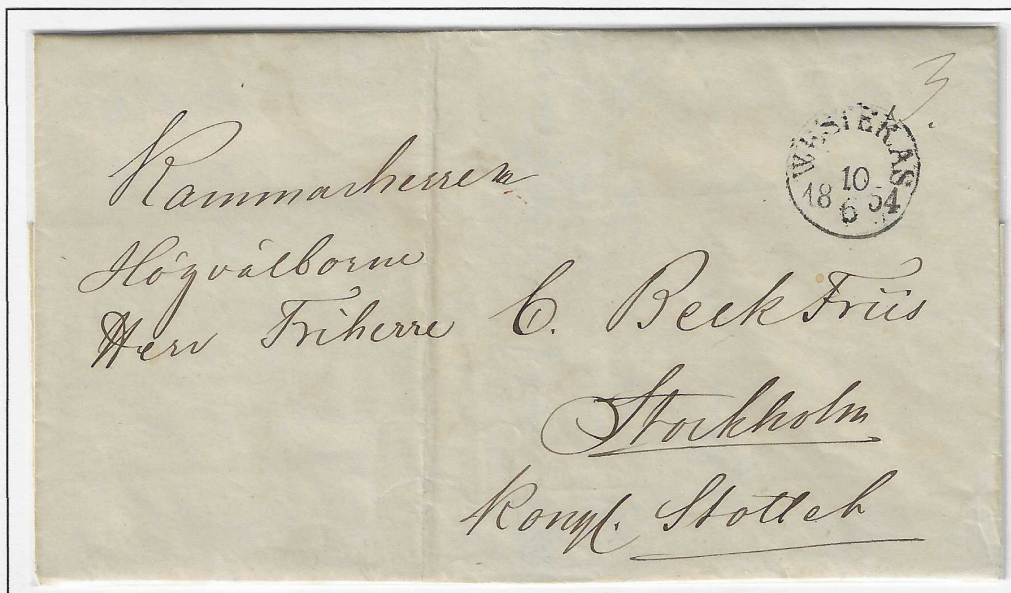 3.
WESTERÅS
10
18 54
6
Kammarherren
Högvälborne
Herr Friherre C. Beck Friis
Stockholm
Kongl. Slottet